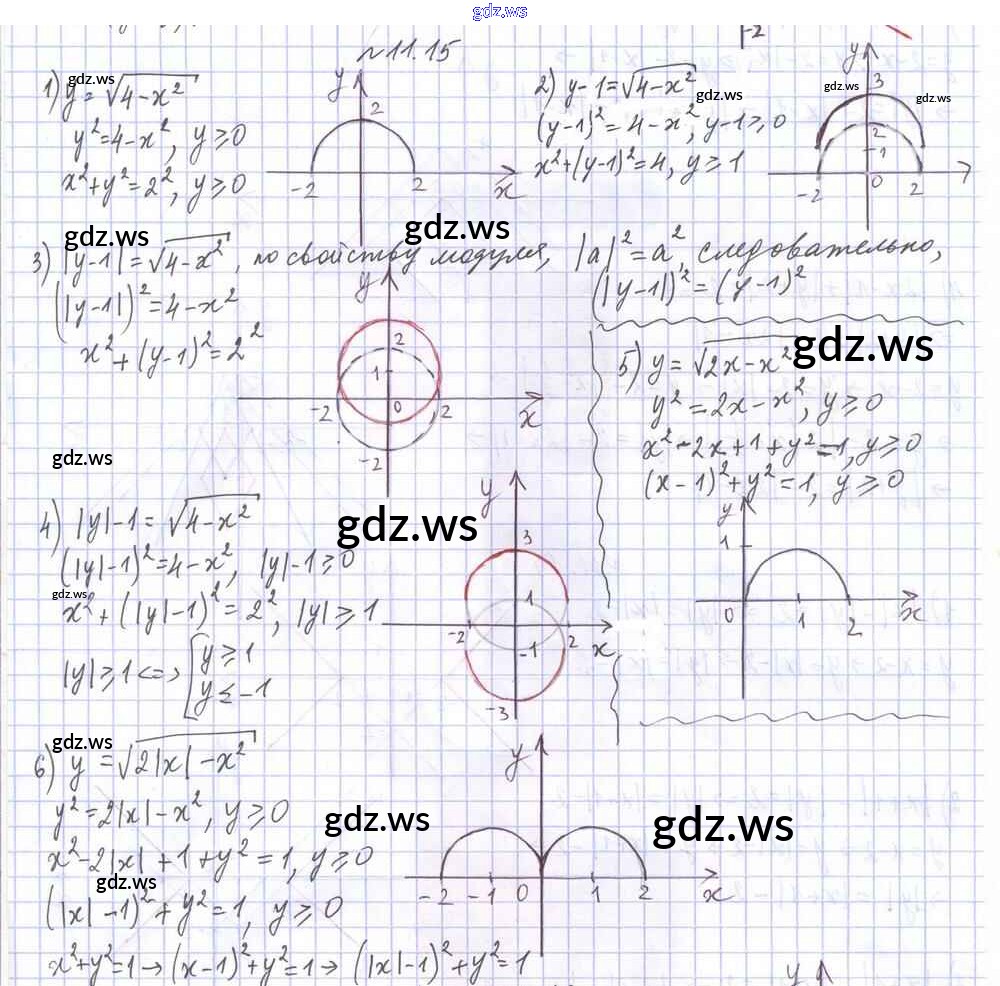 gdz.ws
№11.15
1) y = √(4-x²)
y² = 4-x², y ≥ 0
x²+y² = 2², y ≥ 0
y
2
-2
2
x
2) y-1 = √(4-x²)
(y-1)² = 4-x², y-1 ≥ 0
x²+(y-1)² = 4, y ≥ 1
y
3
2
1
-2
0
2
gdz.ws
gdz.ws
gdz.ws
gdz.ws
gdz.ws
gdz.ws
3) |y-1| = √(4-x²), по свойству модуля, |a|² = a², следовательно,
(|y-1|)² = (y-1)²
(|y-1|)² = 4-x²
x²+(y-1)² = 2²
y
2
1
-2
0
2
x
-2
gdz.ws
gdz.ws
5) y = √(2x-x²)
y² = 2x-x², y ≥ 0
x²-2x+1+y² = 1, y ≥ 0
(x-1)²+y² = 1, y ≥ 0
y
1
0
1
2
x
4) |y|-1 = √(4-x²)
(|y|-1)² = 4-x², |y|-1 ≥ 0
x²+(|y|-1)² = 2², |y| ≥ 1
|y| ≥ 1 <=> [ y ≥ 1
y ≤ -1
gdz.ws
gdz.ws
y
3
1
-2
2
x
-1
-3
gdz.ws
6) y = √(2|x|-x²)
y² = 2|x|-x², y ≥ 0
x²-2|x|+1+y² = 1, y ≥ 0
(|x|-1)²+y² = 1, y ≥ 0
x²+y²=1 → (x-1)²+y²=1 → (|x|-1)²+y²=1
gdz.ws
gdz.ws
gdz.ws
y
-2
-1
0
1
2
x
y